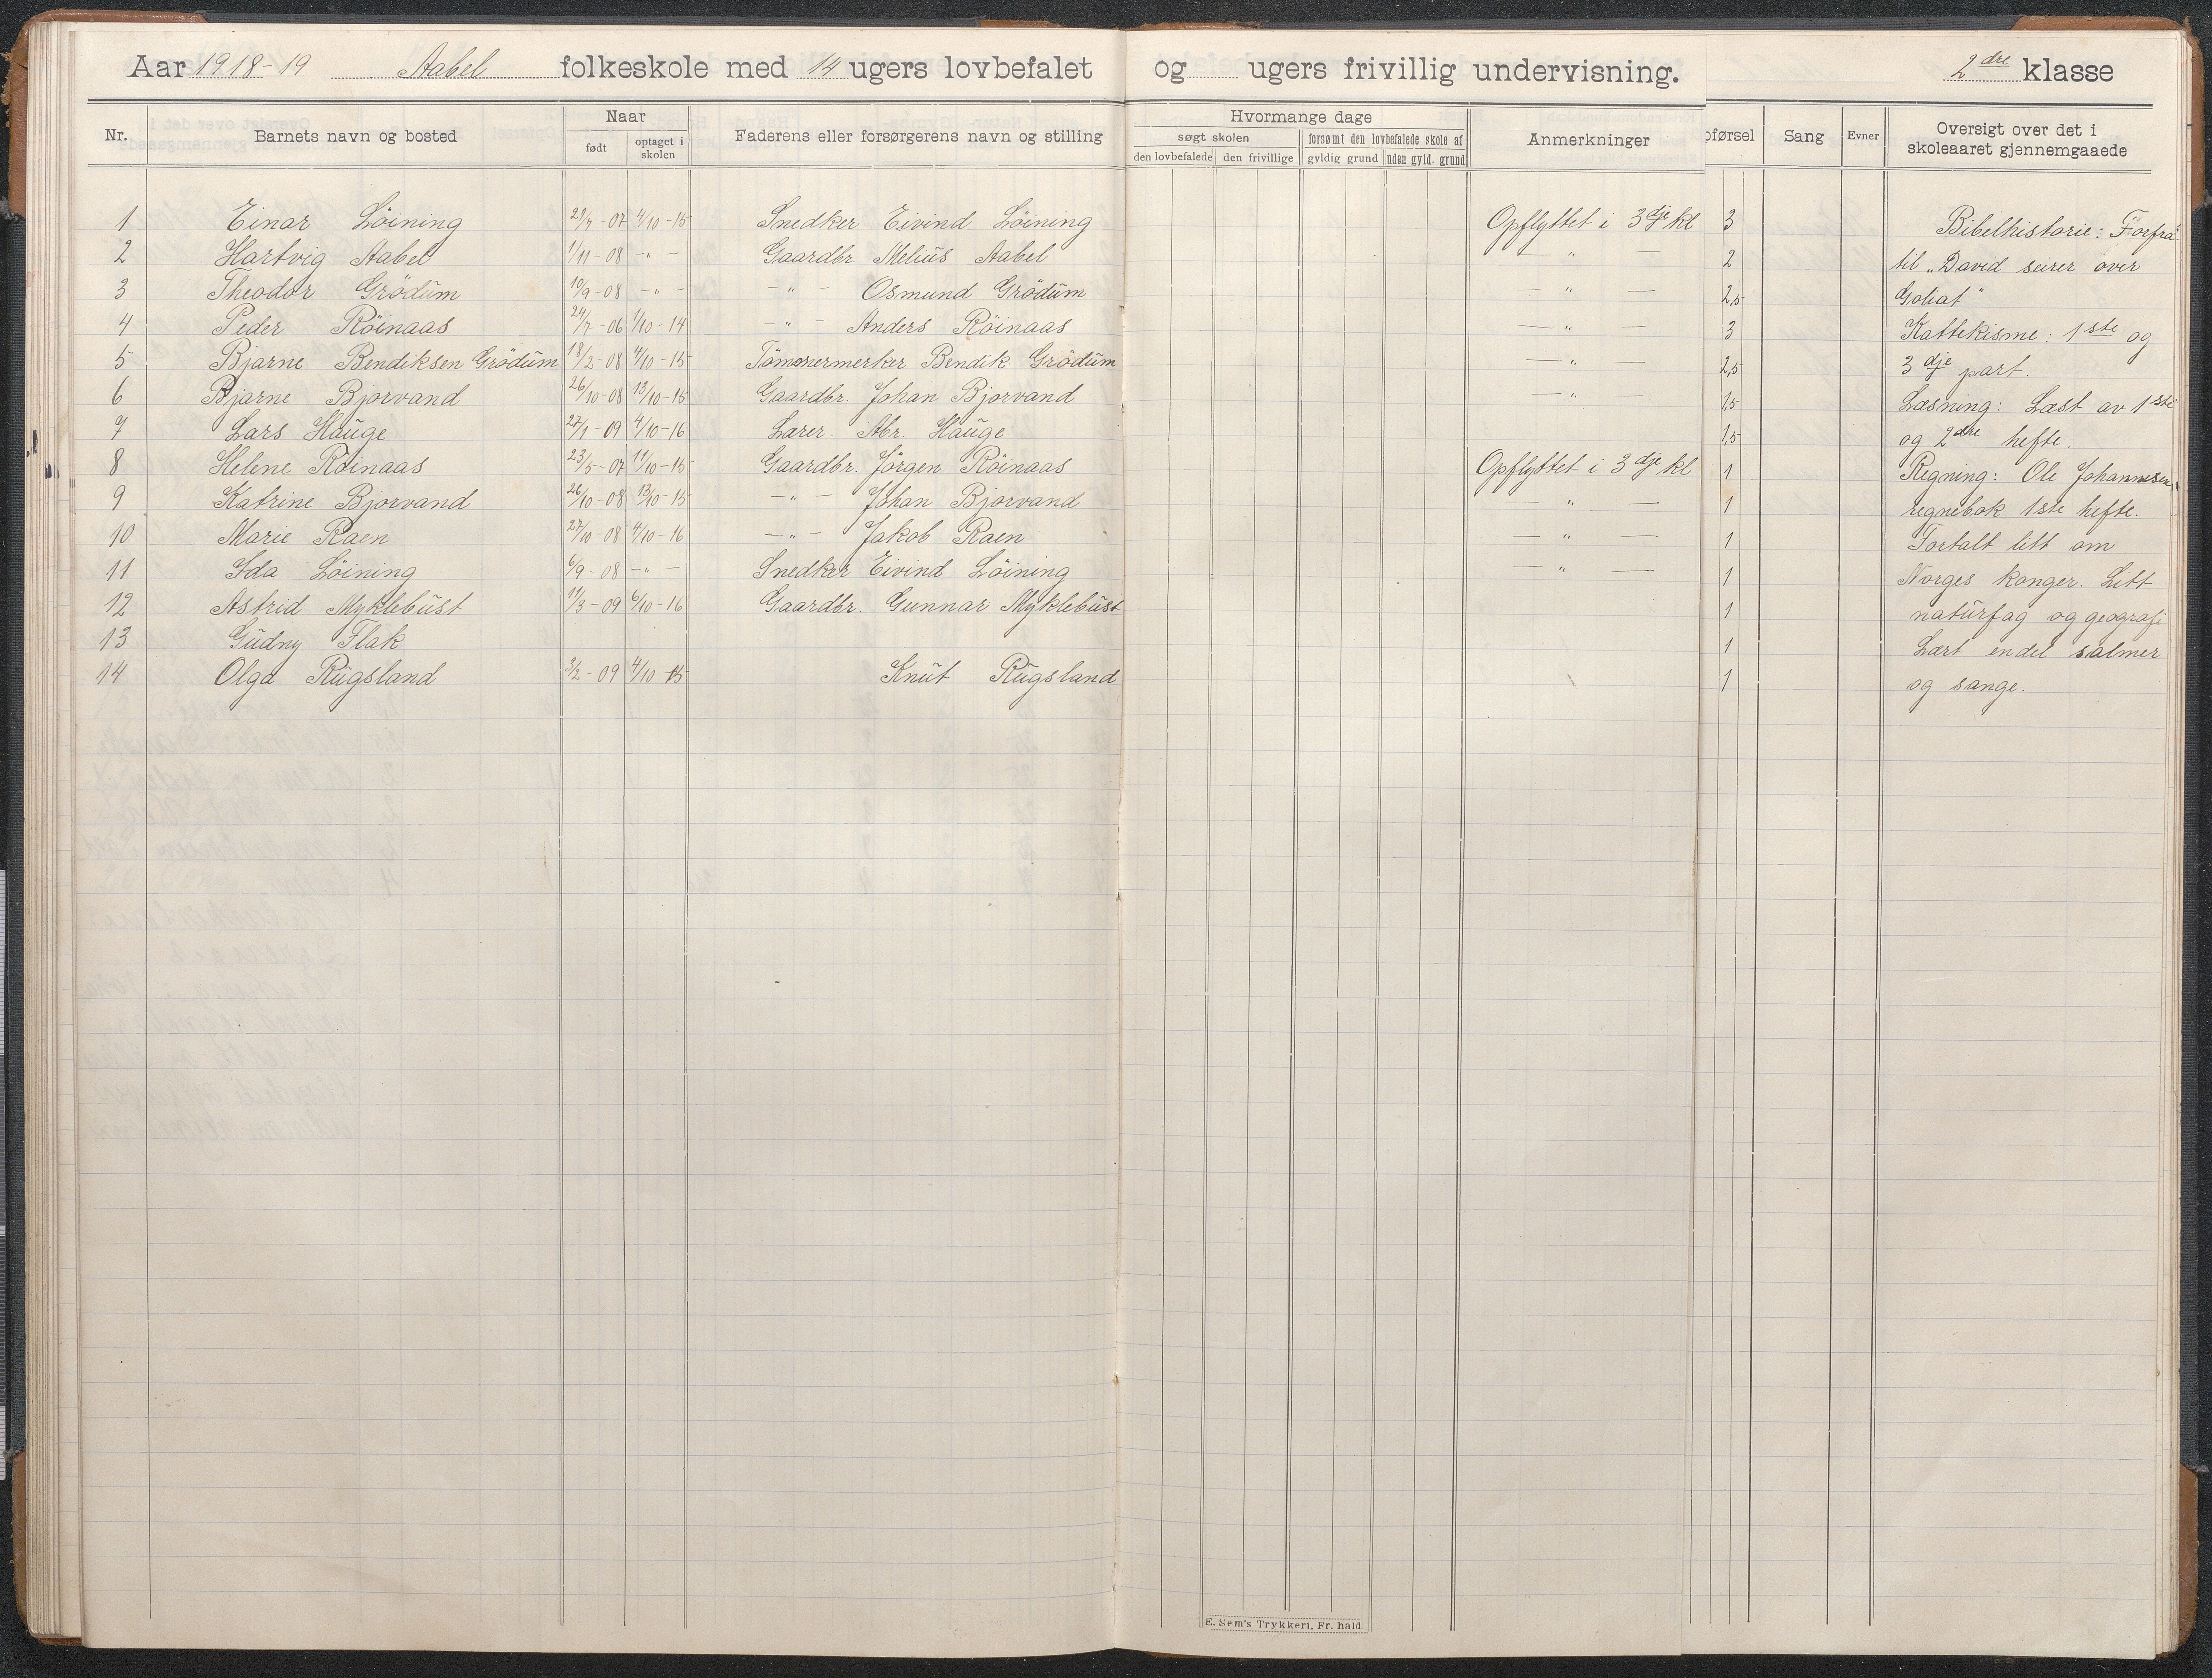 Aar 1918-19 Aabel folkeskole med 14 ugers lovbefalet og ugers frivillig undervisning. 2dre klasse
Nr. Barnets navn og bosted Naar født optaget i skolen Faderens eller forsørgerens navn og stilling Hvormange dage søgt skolen den lovbefalede den frivillige forsømt den lovbefalede skole af gyldig grund uden gyld. grund Anmerkninger pførsel Sang Evner Oversigt over det i skoleaaret gjennemgaaede
1 Einar Löining 29/7-07 4/10-15 Snedker Eivind Löining Opflyttet i 3dje kl 3 Bibelhistorie: Forfra
2 Hartvig Aabel 1/11-08 -"- Gaardbr Melius Aabel — " — 2 til „David seirer over
3 Theodor Grödum 10/9-08 -"- -"- Osmund Grödum — " — 2,5 Goliat"
4 Peder Röinaas 24/7-06 1/10-14 -"- Anders Röinaas — " — 3 Kattekisme: 1ste og
5 Bjarne Bendiksen Grödum 18/2-08 4/10-15 Tömmermerker Bendik Grödum — " 2,5 3dje part.
6 Bjarne Bjorvand 26/10-08 13/10-15 Gaardbr. Johan Bjorvand — " — 1,5 Læsning: Læst av 1ste
7 Lars Hauge 27/1-09 4/10-16 Lærer. Abr. Hauge 1,5 og 2dre hefte.
8 Helene Röinaas 23/5-07 11/10-15 Gaardbr. Jörgen Röinaas Opflyttet i 3dje kl 1 Regning: Ole Johannesen
9 Katrine Bjorvand 26/10-08 13/10-15 -"- Johan Bjorvand " — 1 regnebok 1ste hefte.
10 Marie Raen 27/10-08 4/10-16 -"- Jakob Raen — " — 1 Fortalt litt om
11 Ida Löining 6/9-08 -"- Snedker Eivind Löining " — 1 Norges konger. Litt
12 Astrid Myklebust 11/3-09 6/10-16 Gaardbr. Gunnar Myklebust 1 naturfag og geografi
13 Gudny Flak 1 Lært endel salmer
14 Olga Rugsland 3/2-09 4/10-15 Knut Rugsland 1 og sange.
E. Sem's Trykkeri, Fr. hald